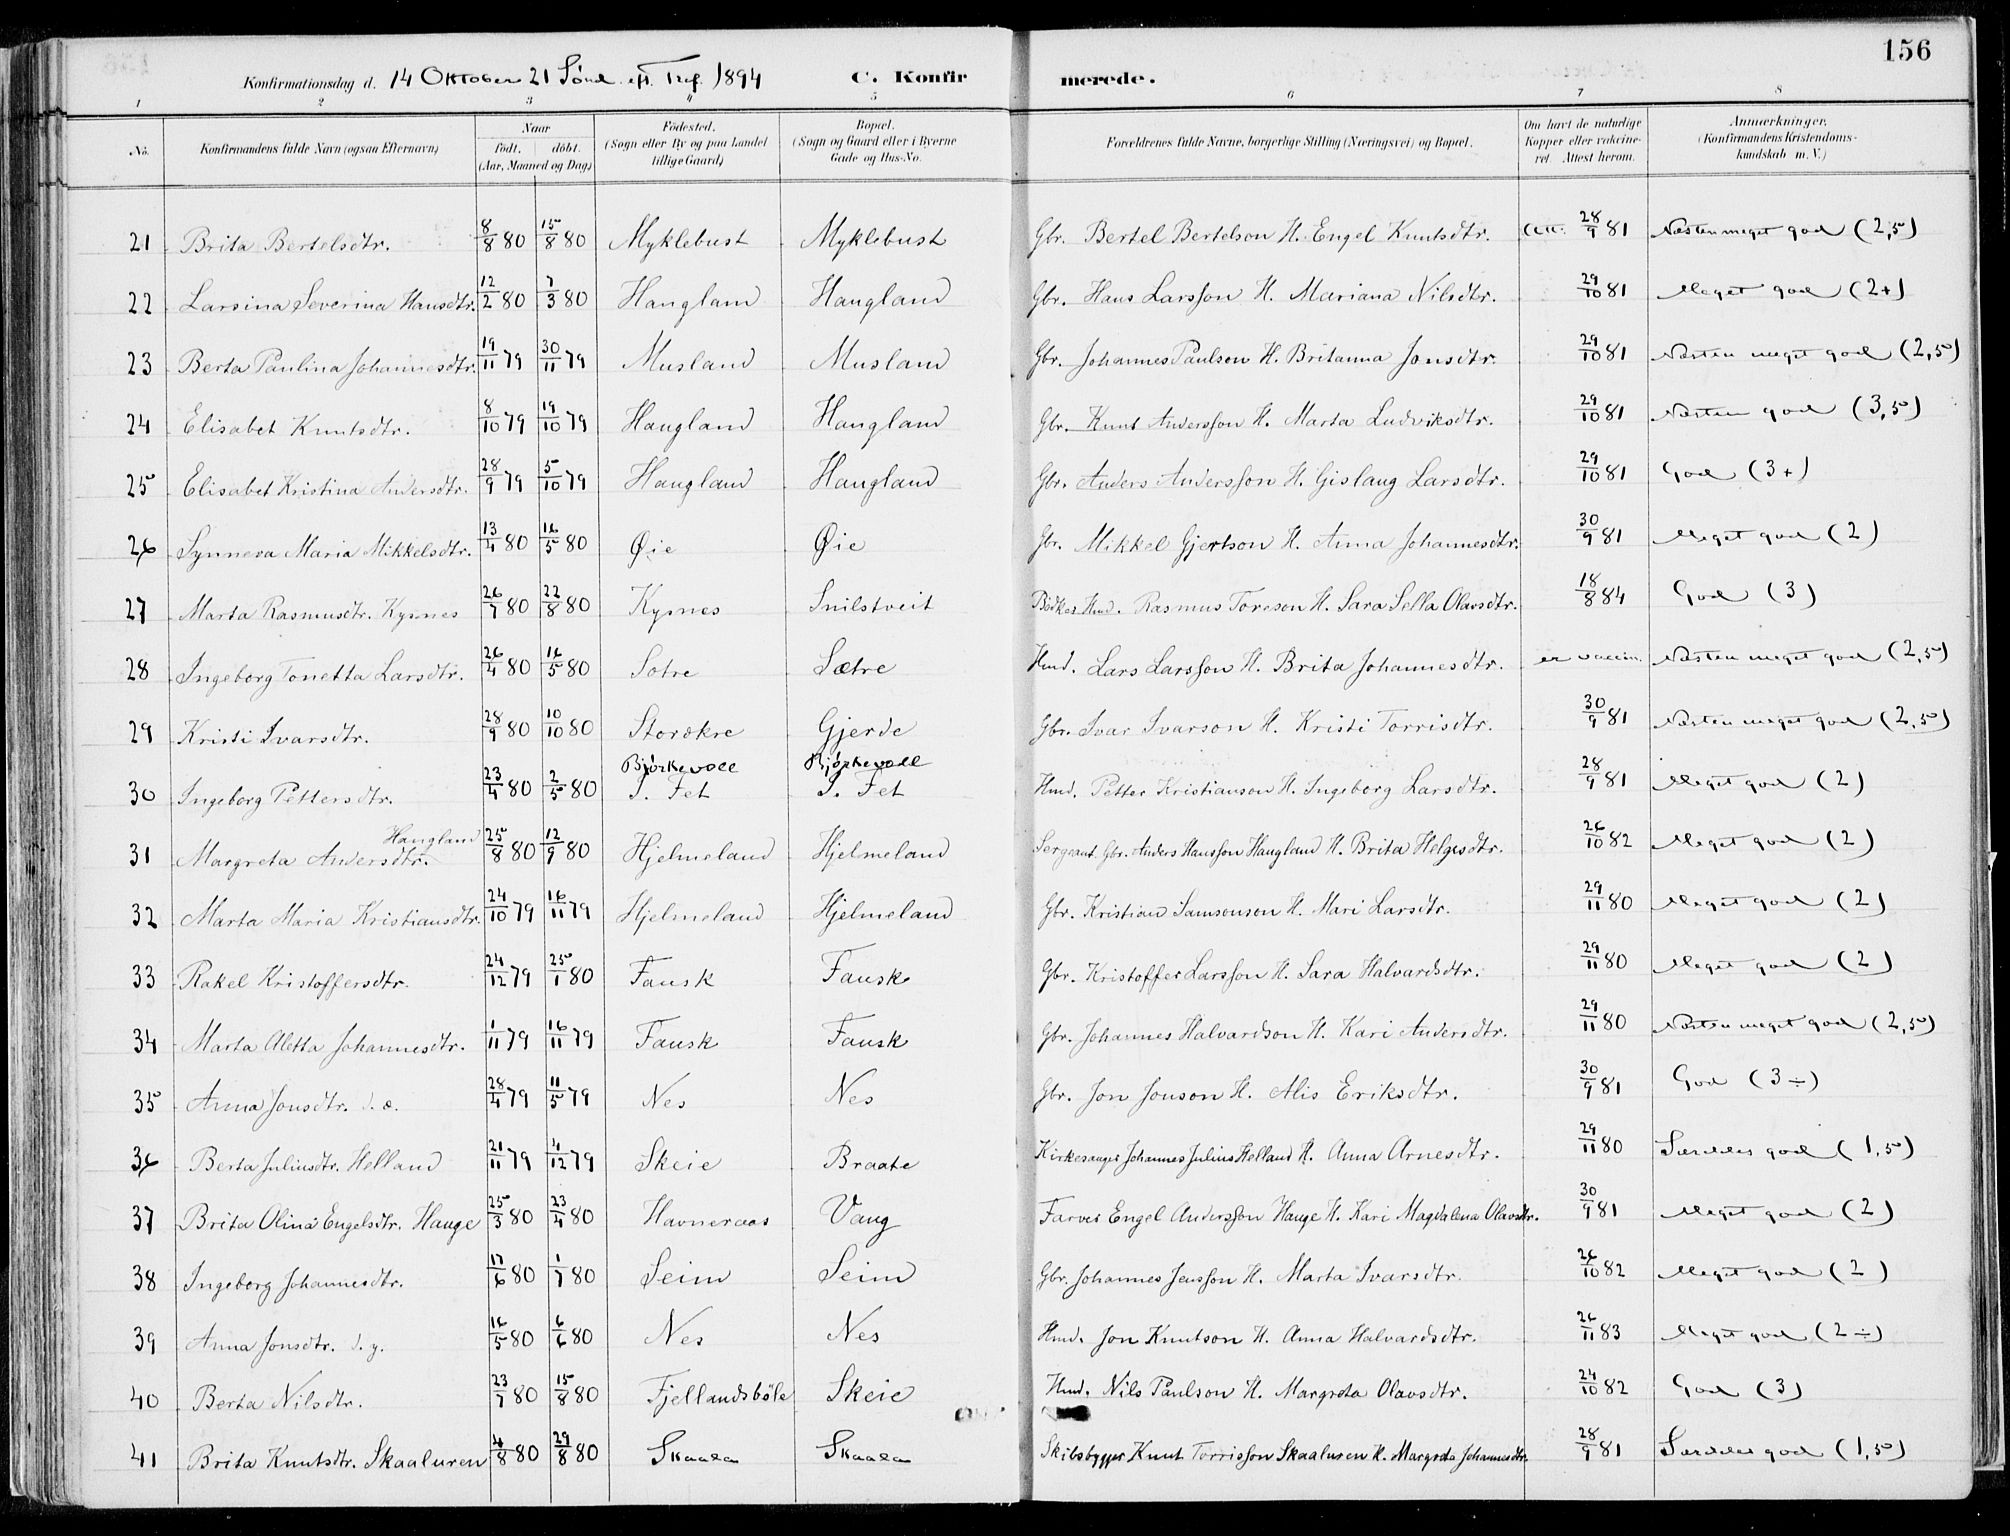 156
Konfirmationsdag d. 14 Oktober 21 Sönd. eft. Tref. 1894 C. Konfirmerede.
1 2 3 4 5 6 7 8
No. Konfirmandens fulde Navn (ogsaa Efternavn) Naar födt. döbt. (Aar, Maaned og Dag) Födested. (Sogn eller By og paa Landet tillige Gaard) Bopæl. (Sogn og Gaard eller i Byerne Gade og Hus-No. Forældrenes fulde Navne, borgerlige Stilling (Næringsvei) og Bopæl. Om havt de naturlige Kopper eller vakcineret. Attest herom. Anmærkninger, (Konfirmandens Kristendomskundskab m. V.)
21 Brita Bertelsdtr. 8/8 80 15/8 80 Myklebust Myklebust Gbr. Bertel Bertelson H. Engel Knutsdtr. Att. 28/9 81 Næsten meget god (2,5)
22 Larsina Severina Hansdtr. 12/2 80 7/3 80 Haugland Haugland Gbr. Hans Larsson H. Mariana Nilsdtr. 29/10 81 Meget god (2+)
23 Berta Paulina Johannesdtr. 19/11 79 30/11 79 Musland Musland Gbr. Johannes Paulson H. Britanna Jonsdtr. 29/10 81 Næsten meget god (2,5)
24 Elisabet Knutsdtr. 8/10 79 19/10 79 Haugland Haugland Gbr. Knut Andersson H. Marta Ludviksdtr. 29/10 81 Næsten god (3,5)
25 Elisabet Kristina Andersdtr. 28/9 79 5/10 79 Haugland Haugland Gbr. Anders Andersson H. Gislaug Larsdtr. 29/10 81 God (3+)
26 Synneva Maria Mikkelsdtr. 13/4 80 16/5 80 Øie Øie Gbr. Mikkel Gjertson H. Anna Johannesdtr. 30/9 81 Meget god (2)
27 Marta Rasmusdtr. Kysnes 26/7 80 22/8 80 Kysnes Snilstveit Bödker Hmd. Rasmus Toreson H. Sara Sella Olavsdtr. 18/8 84 God (3)
28 Ingeborg Tonetta Larsdtr. 26/4 80 16/5 80 Sætre Sætre Hmd. Lars Larsson H. Brita Johannesdtr. er vaccin. Næsten meget god (2,5)
29 Kristi Ivarsdtr. 28/9 80 10/10 80 Storækre Gjerde Gbr. Ivar Ivarson H. Kristi Torrisdtr. 30/9 81 Næsten meget god (2,5)
30 Ingeborg Pettersdtr. 23/4 80 2/5 80 Bjørkevoll I. Fet Bjørkevoll I. Fet Hmd. Petter Kristianson H. Ingeborg Larsdtr. 28/9 81 Meget god (2)
31 Margreta Andersdtr. Haugland 25/8 80 12/9 80 Hjelmeland Hjelmeland Sergeant Gbr. Anders Hansson Haugland H. Brita Helgesdtr. 26/10 82 Meget god (2)
32 Marta Maria Kristiansdtr. 24/10 79 16/11 79 Hjelmeland Hjelmeland Gbr. Kristian Samsonson H. Mari Larsdtr. 29/11 80 Meget god (2)
33 Rakel Kristoffersdtr. 24/12 79 25/1 80 Fausk Fausk Gbr. Kristoffer Larsson H. Sara Halvardsdtr. 29/11 80 Meget god (2)
34 Marta Aletta Johannesdtr. 1/11 79 16/11 79 Fausk Fausk Gbr. Johannes Halvardson H. Kari Andersdtr. 29/11 80 Næsten meget god (2,5)
35 Anna Jonsdtr. d. æ. 28/4 79 11/5 79 Nes Nes Gbr. Jon Jonson H. Alis Eriksdtr. 30/9 81 God (3÷)
36 Berta Juliusdtr. Helland 21/11 79 4/12 79 Skeie Braate Kirkesanger Johannes Julius Helland H. Anna Arnesdtr. 29/11 80 Særdeles god (1,5)
37 Brita Olina Engelsdtr. Hauge 25/3 80 23/4 80 Havneraas Vang Farver Engel Andersson Hauge H. Kari Magdalena Olavsdtr. 30/9 81 Meget god (2)
38 Ingeborg Johannesdtr. 17/6 80 1/7 80 Seim Seim Gbr. Johannes Jensson H. Marta Ivarsdtr. 26/10 82 Meget god (2)
39 Anna Jonsdtr. d. y. 16/5 80 6/6 80 Nes Nes Hmd. Jon Knutson H. Anna Halvardsdtr. 26/11 83 Meget god (2÷)
40 Berta Nilsdtr. 23/7 80 15/8 80 Fjellandsböle Skeie Hmd. Nils Paulson H. Margreta Olavsdtr. 24/10 82 God (3)
41 Brita Knutsdtr. Skaaluren 4/8 80 29/8 80 Skaala Skaala Skibsbygger Knut Torrisson Skaaluren H. Margreta Johannesdtr. 28/9 81 Særdeles god (1,5)